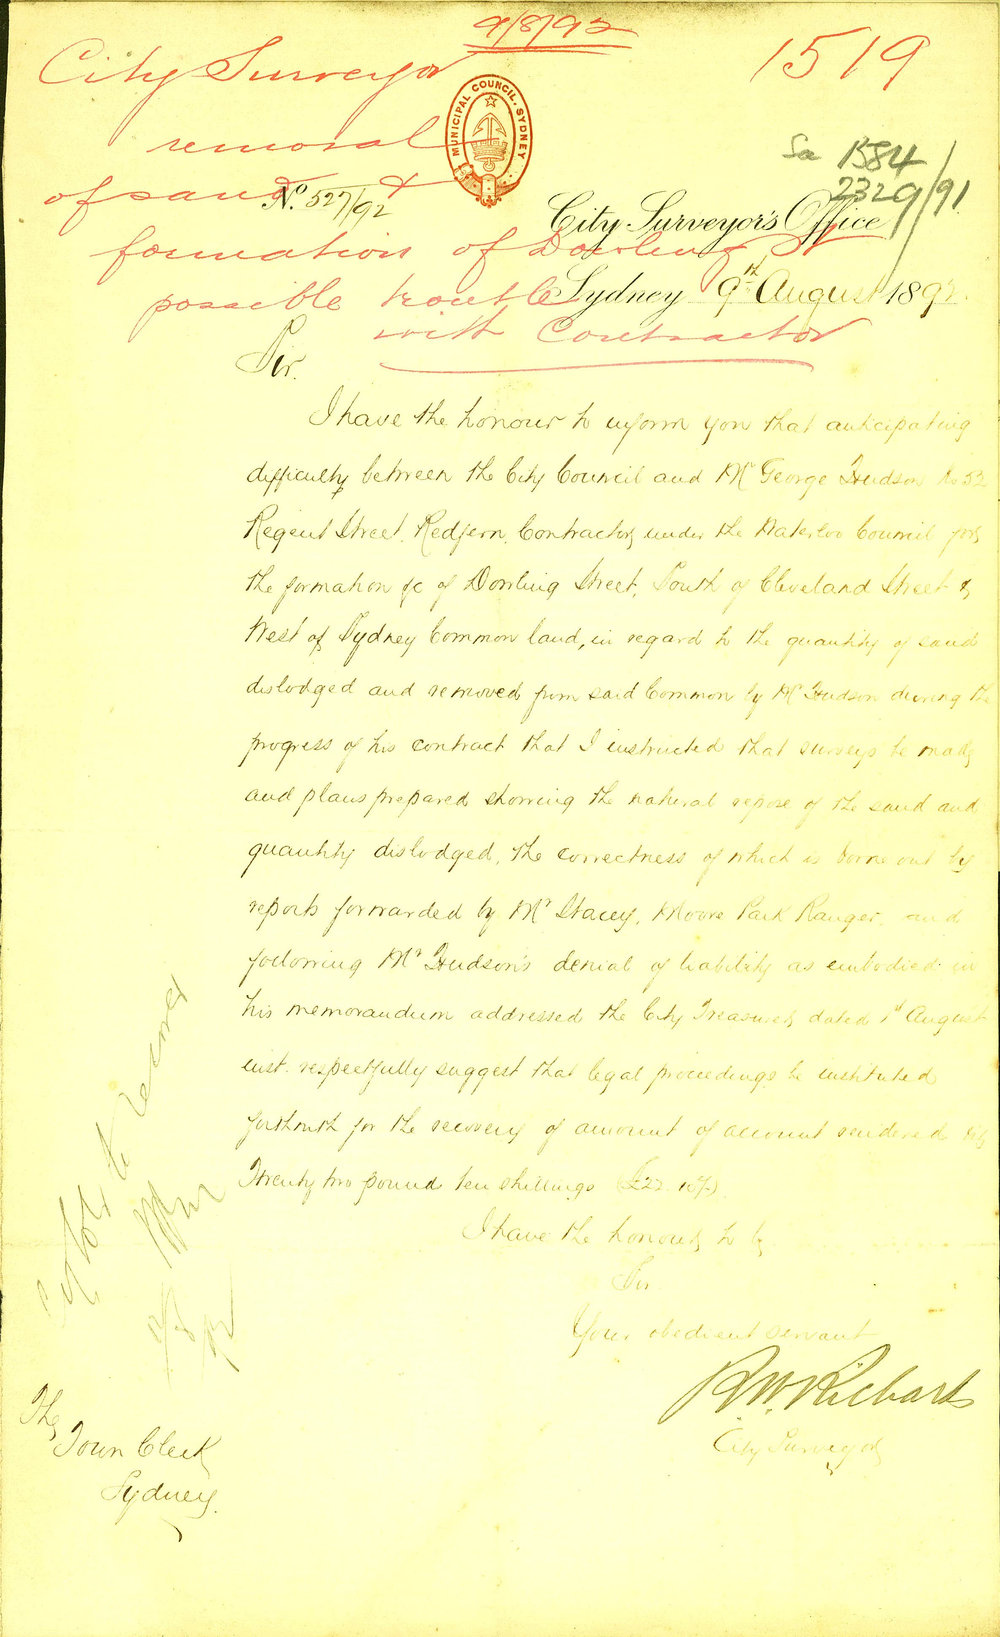 9/8/92
1519
City Surveyor
removal
of sand &
formation of Dowling St
possible trouble
with Contractor
MUNICIPAL COUNCIL. SYDNEY
Sa 1584
2329/91
No. 527/92
City Surveyor's Office
Sydney 9th August 1892.
Sir.
I have the honour to inform you that anticipating
difficulty between the City Council and Mr George Hudson No 52
Regent Street, Redfern, Contractor, under the Waterloo Council for
the formation &c of Dowling Street, South of Cleveland Street &
West of Sydney Common land, in regard to the quantity of sand
dislodged and removed from said Common by Mr Hudson during the
progress of his contract that I instructed that surveys be made
and plans prepared showing the natural repose of the sand and
quantity dislodged, the correctness of which is borne out by
reports forwarded by Mr Stacey, Moore Park Ranger, and
following Mr Hudson's denial of liability as embodied in
his memorandum addressed the City Treasurer, dated 1st August
inst. respectfully suggest that legal proceedings be instituted
forthwith for the recovery of amount of account rendered
Twenty two pound ten shillings (£22.10/-)
I have the honour to be
Sir
Your obedient servant
R W. Richards
City Surveyor
The
Town Clerk
Sydney.